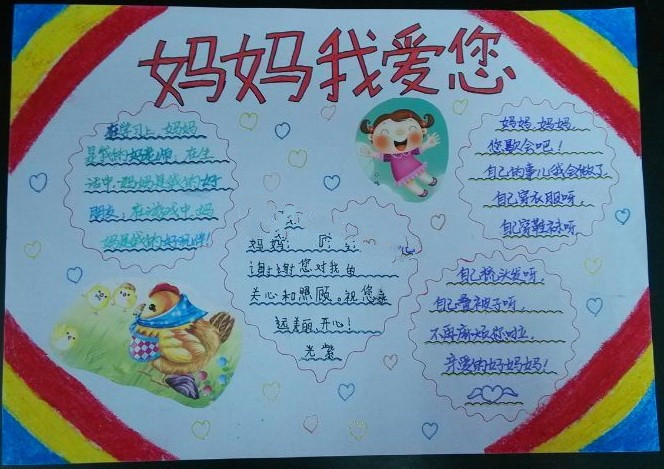 妈妈我爱您
在学习上，妈妈
是我的好老师，在生
活中妈妈是我的好
朋友，在游戏中妈
妈是我的好玩伴！
妈妈：
谢谢您对我的
关心和照顾。祝您永
远美丽、开心！
妈妈，妈妈，
您歇会吧！
自己的事儿我会做了
自己穿衣服呀，
自己穿鞋袜呀，
自己梳头发呀，
自己叠被子呀，
不再麻烦您啦，
亲爱的好妈妈！